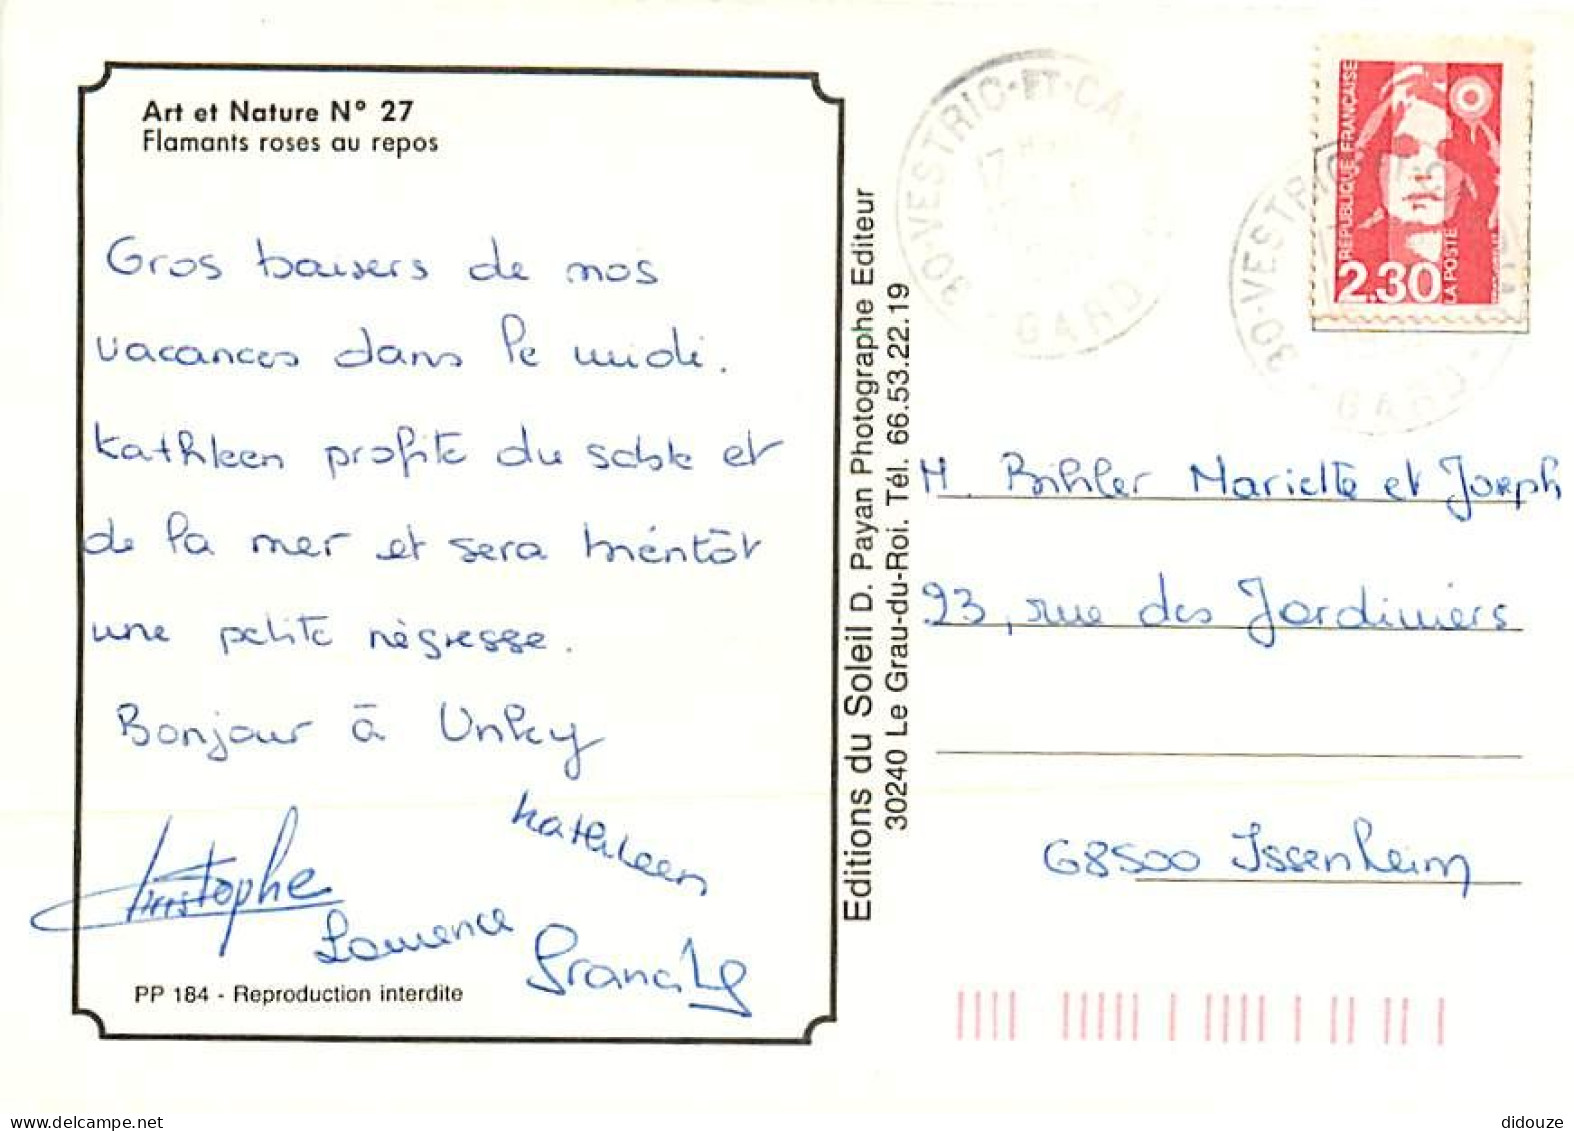 Art et Nature N° 27
Flamants roses au repos
Gros baisers de nos
vacances dans le midi.
Kathleen profite du sable et
de la mer et sera bientôt
une petite négresse.
Bonjour à Unky
Kathleen
Christophe
Laurence
PP 184 - Reproduction interdite
Editions du Soleil D. Payan Photographe Editeur
30240 Le Grau-du-Roi. Tél. 66.53.22.19
30-VESTRIC-ET-CAN
17 H
GARD
REPUBLIQUE FRANÇAISE
2.30
LA POSTE
30-VESTRIC
GARD
M. Bihler Marielle et Joseph
23, rue des Jardiniers
68500 Issenheim
www.delcampe.net
didouze